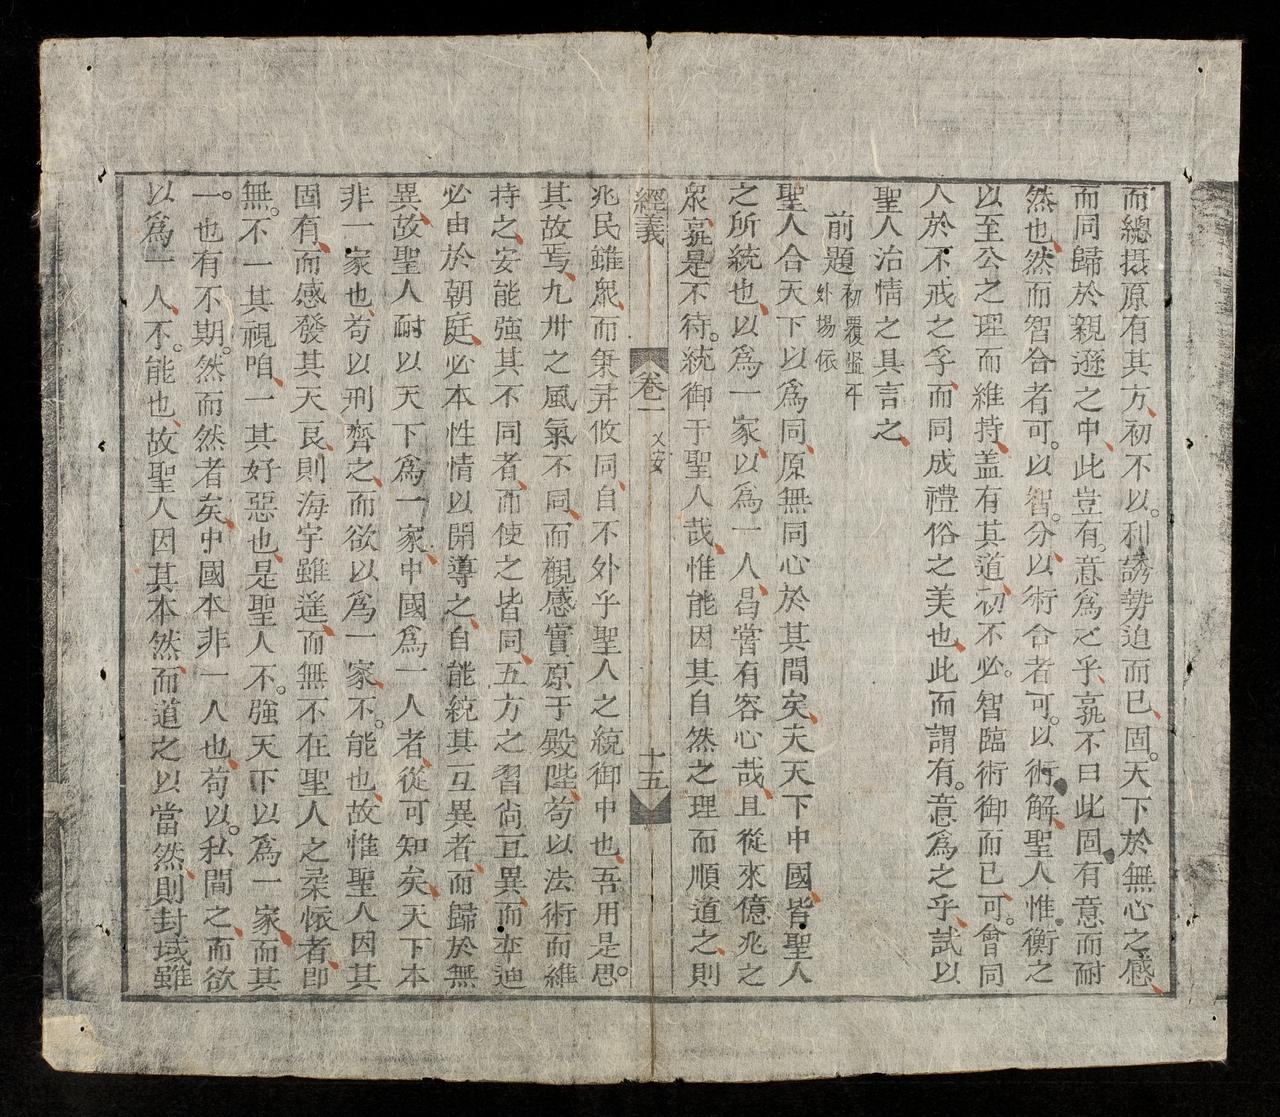 而總攝原有其方初不以利誘勢迫而已固天下於無心之感
而同歸於親遜之中此豈有意爲之乎孰不曰此固有意而耐
然也然而智合者可以智分以術合者可以術解聖人惟衡之
以至公之理而維持盖有其道初不必智臨術御而已可會同
人於不戒之孚而同成禮俗之美也此而謂有意爲之乎試以
聖人治情之具言之
前題 初覆監年
外場依
聖人合天下以爲同原無同心於其間矣夫天下中國皆聖人
之所統也以爲一家以爲一人曷嘗有容心哉且從來億兆之
衆孰是不待統御于聖人哉惟能因其自然之理而順道之則
經義 卷一 文安 十五
兆民雖衆而秉彛攸同自不外乎聖人之統御中也吾用是思
其故焉九卅之風氣不同而觀感實原于殿陛苟以法術而維
持之安能強其不同者而使之皆同五方之習尙互異而率迪
必由於朝庭必本性情以開導之自能統其互異者而歸於無
異故聖人耐以天下爲一家中國爲一人者從可知矣天下本
非一家也苟以刑齊之而欲以爲一家不能也故惟聖人因其
固有而感發其天良則海宇雖遙而無不在聖人之柔懷者卽
無不一其視咱一其好惡也是聖人不強天下以爲一家而其
一也有不期然而然者矣中國本非一人也苟以私間之而欲
以爲一人不能也故聖人因其本然而道之以當然則封域雖